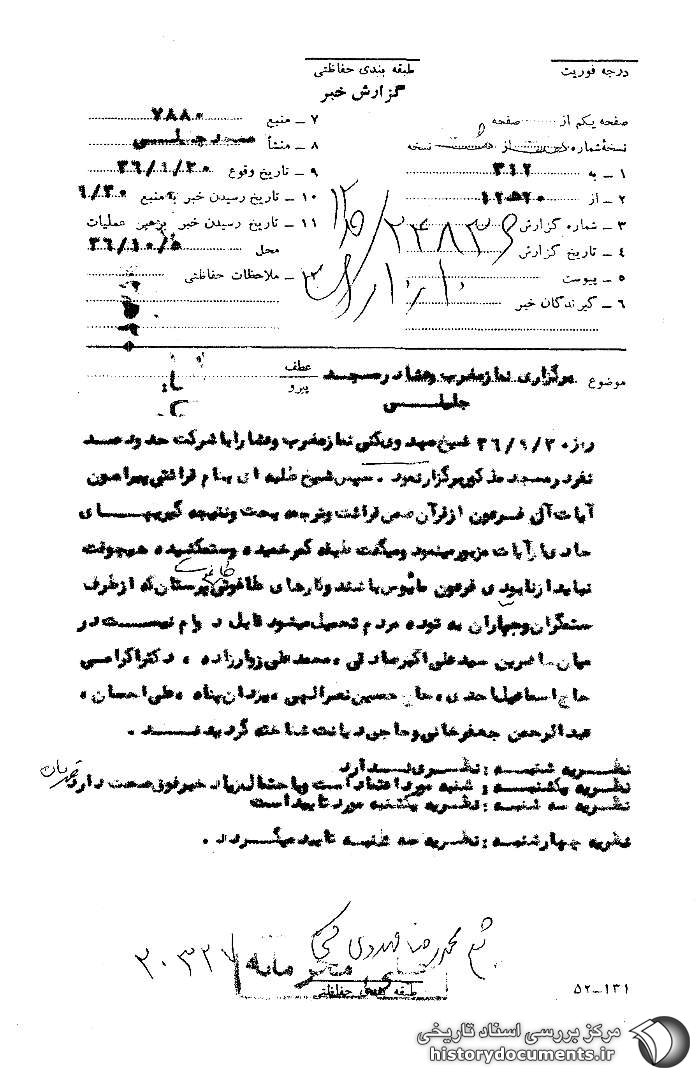 درجه فوریت
طبقه بندی حفاظتی
گزارش خبر
صفحه یکم از صفحه
نسخهٔ شماره از هشت نسخه
۱ ـ به ۳۱۲
۲ ـ از
۳ ـ شماره گزارش
۴ ـ تاریخ گزارش
۵ ـ پیوست
۶ ـ گیرندگان خبر
۷ ـ منبع ۷۸۸۰
۸ ـ منشأ
۹ ـ تاریخ وقوع
۱۰ ـ تاریخ رسیدن خبر به منبع
۱۱ ـ تاریخ رسیدن خبر به رهبر عملیات
محل ۳۶/۱۰/۵
ملاحظات حفاظتی
موضوع برگزاری نماز مغرب و عشا در مسجد
جلیلی
عطف
پیرو
روز ۳۶/۹/۳۰ شیخ مهدوی کنی نماز مغرب و عشا را با شرکت حدود صد
نفر در مسجد مذکور برگزار نمود . سپس شیخ طلبه ای بنام قرائتی پیرامون
آیات آل فرعون از قرآن ضمن قرائت و ترجمه بحث و نتیجه گیریهای
حادی از آیات مزبور مینمود و میگفت طبقه کمر خمیده و ستمکشیده هیچوقت
نباید از نابودی فرعون مأیوس باشند و کارهای طاغوتی پرستان که از طرف
ستمگران و جباران به توده مردم تحمیل میشود قابل دوام نیست در
میان حاضرین سید علی اکبر صادقی ، محمد علی زوارزاده ، دکتر اکرامی
حاج اسماعیل احدی ، حاج حسین نصرالهی ، یزدان پناه ، علی احسان ،
عبدالرحمن جعفرخانی و حاجی دیانت شناخته گردیدند .
نظریه شنبه : نظری ندارد
نظریه یکشنبه : شنبه مورد اعتماد است و با احتمال زیاد خبر فوق صحت دارد
نظریه سه شنبه : نظریه یکشنبه مورد تایید است
نظریه چهارشنبه : نظریه سه شنبه تایید میگردد .
محمدرضا مهدوی کنی
۲۰۳۲۷
خیلی محرمانه
طبقه بندی حفاظتی
۵۲-۱۳۱
مرکز بررسی اسناد تاریخی
historydocuments.ir